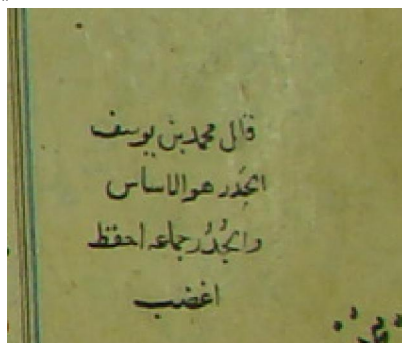 قال محمد بن يوسف
الجَدر هو الاساس
والجُدُر جماعه احفظ
اغضب